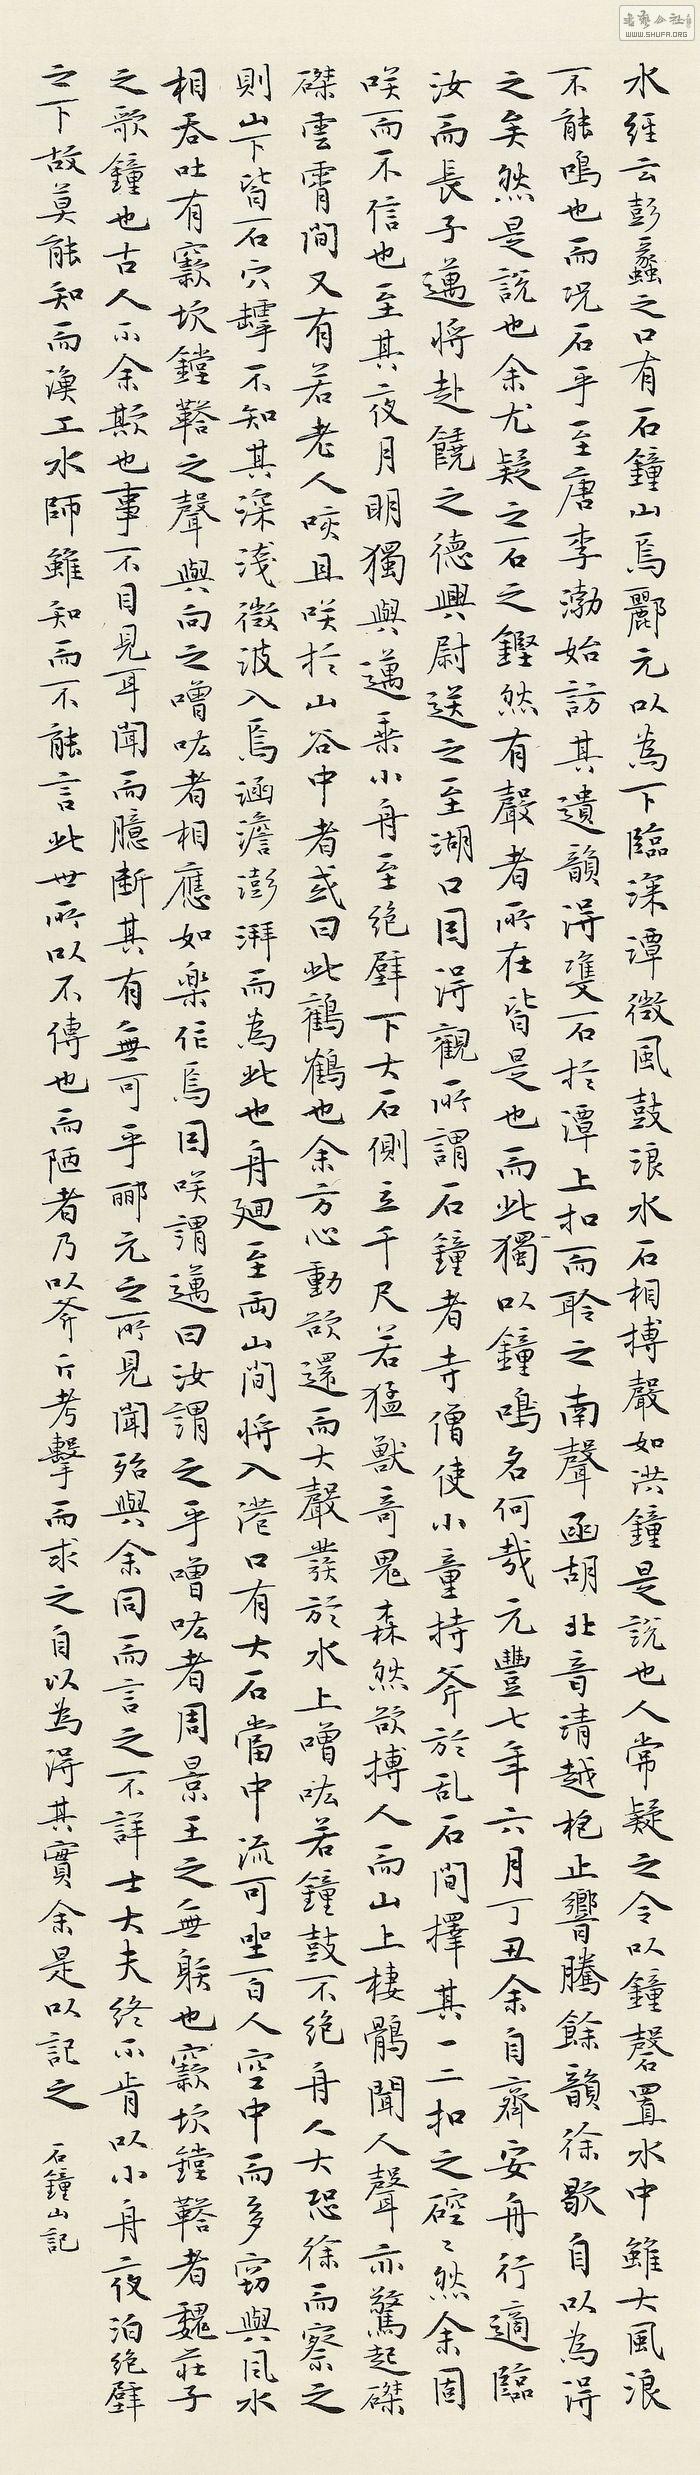 水經云彭蠡之口有石鐘山焉酈元以為下臨深潭微風鼓浪水石相搏聲如洪鐘是說也人常疑之今以鐘磬置水中雖大風浪
不能鳴也而況石乎至唐李渤始訪其遺韻得雙石於潭上扣而聆之南聲函胡北音清越枹止響騰餘韻徐歇自以為得
之矣然是說也余尤疑之石之鏗然有聲者所在皆是也而此獨以鐘鳴名何哉元豐七年六月丁丑余自齊安舟行適臨
汝而長子邁將赴饒之德興尉送之至湖口因得觀所謂石鐘者寺僧使小童持斧於乱石間擇其一二扣之硿々然余固
咲而不信也至其夜月明獨與邁乘小舟至絕壁下大石側立千尺若猛獸奇鬼森然欲搏人而山上棲鶻聞人聲亦驚起磔
磔雲霄間又有若老人咳且咲於山谷中者或曰此鸛鶴也余方心動欲還而大聲發於水上噌吰若鐘鼓不絕舟人大恐徐而察之
則山下皆石穴罅不知其深淺微波入焉涵澹澎湃而為此也舟迴至兩山間將入港口有大石當中流可坐百人空中而多竅與風水
相吞吐有窾坎鏜鞳之聲與向之噌吰者相應如樂作焉因咲謂邁曰汝識之乎噌吰者周景王之無射也窾坎鏜鞳者魏莊子
之歌鐘也古人不余欺也事不目見耳聞而臆斷其有無可乎酈元之所見聞殆與余同而言之不詳士大夫終不肯以小舟夜泊絕壁
之下故莫能知而漁工水師雖知而不能言此世所以不傳也而陋者乃以斧斤考擊而求之自以為得其實余是以記之 石鐘山記
書藝公社
WWW.SHUFA.ORG